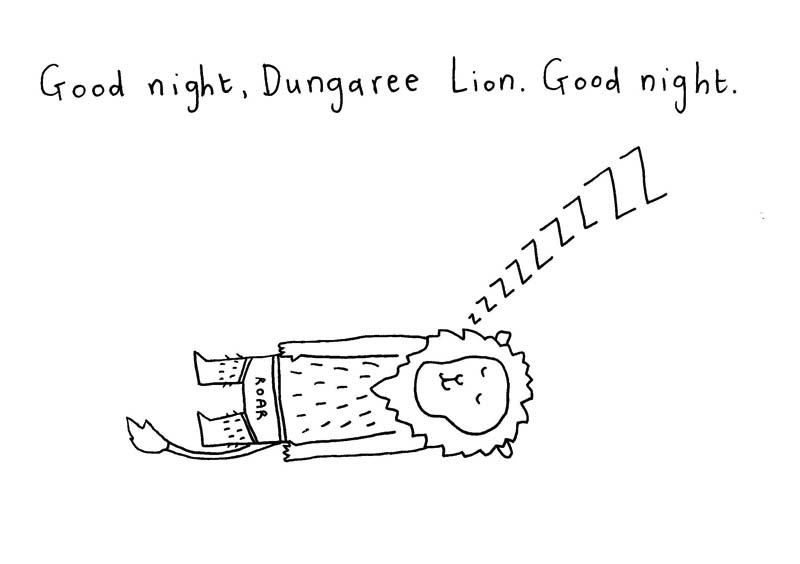 Good night, Dungaree Lion. Good night.
zzzzzzzzZZ
ROAR